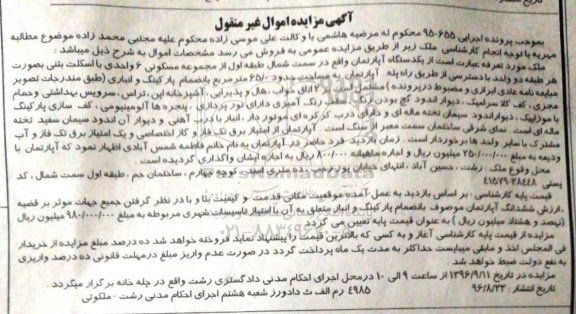 آگهی مزایده اموال غیر منقول
بموجب پرونده اجرایی ۹۵۰۶۵۵ محکوم له مرضیه هاشمی با وکالت علی موسی زاده محکوم علیه مجتبی محمد زاده موضوع مطالبه
مهریه با توجه انجام کارشناسی ملک زیر از طریق مزایده عمومی به فروش می رسد مشخصات اموال به شرح ذیل میباشد :
ملک مورد تعرفه عبارت است از یکدستگاه آپارتمان واقع در سمت شمال طبقه اول از مجموعه مسکونی ۶ واحدی با اسکلت بتنی بصورت
هر طبقه دو واحد با دسترسی از طریق راه پله . آپارتمان به مساحت حدود ۶۵/۰۰ مترمربع بانضمام پارکینگ و انباری (طبق مندرجات تصویر
مبایعه نامه عادی ابرازی و مضبوط در پرونده ) مشتمل است بر ۲ اتاق خواب ، هال و پذیرایی ، آشپزخانه اپن ، تراس ، سرویس بهداشتی وحمام
مجزی ، کف کلا سرامیک ، دیوار اندود گچ بودن رنگ سقف رنگ آمیزی دارای نور پردازی ، پنجره ها آلومینیومی ، کف سازی پارکینگ
با موزاییک ، دیوار اندود سیمان تخته ماله ای و دارای درب کرکره ای موتور دار ، انبار با درب آهنی و دیوار آن اندود سیمان سفید تخته
ماله ای است . نمای شرقی ساختمان سمت معبر از سنگ است . آپارتمان از امتیاز برق تک فاز و گاز اختصاصی و یک امتیاز برق تک فاز و آب
مشترک با سایر واحد ها برخوردار است . زمان بازدید فرد حاضر در آپارتمان به نام خانم فاطمه شمس آبادی اظهار نمود که آپارتمان با
ودیعه به مبلغ ۲۵۰/۰۰۰/۰۰۰ میلیون ریال و اجاره ماهیانه ۸۰۰/۰۰۰ ریال به اجاره ایشان واگذاری گردیده است .
محل وقوع ملک : رشت ، حسین آباد ، انتهای خیابان پوررجبی ، ده متری است ، کوچه چهارم ، ساختمان جم ، طبقه اول سمت شمال ، کد
پستی ۳۸۴۴۸-۴۱۵۷۹
قیمت پایه کارشناسی : بر اساس بازدید به عمل آمده موقعیت مکانی قدمت و کیفیت بنا و با در نظر گرفتن جمیع جهات موثر بر قضیه
،ارزش ششدانگ آپارتمان موصوف بانضمام پارکینگ و انبار متعلق به آن با امتیاز تاسیسات شهری مربوطه به مبلغ ۹۸۰/۰۰۰/۰۰۰ میلیون ریال
(نهصد و هشتاد میلیون ریال ) به عنوان قیمت پایه تعیین می گردد
مزایده از قیمت پایه کارشناسی آغاز و به کسی که بالاترین قیمت را پیشنهاد نماید فروخته خواهد شد ده درصد مبلغ مزایده از خریدار
فی المجلس اخذ و مابقی میبایست حداکثر به مدت یک ماه پرداخت گردد در صورت عدم واریز مبلغ درمهلت قانونی ده درصد واریزی
به نفع دولت ضبط خواهد شد .
مزایده در تاریخ ۱۳۹۶/۹/۱۱ از ساعت ۹ الی ۱۰ درمحل اجرای احکام مدنی دادگستری رشت واقع در جله خانه برگزار میگردد .
تاریخ انتشار : ۹۶/۸/۲۳ ۴۹۸۵ رم الف ث دادورز شعبه هشتم اجرای احکام مدنی رشت - ملکوتی